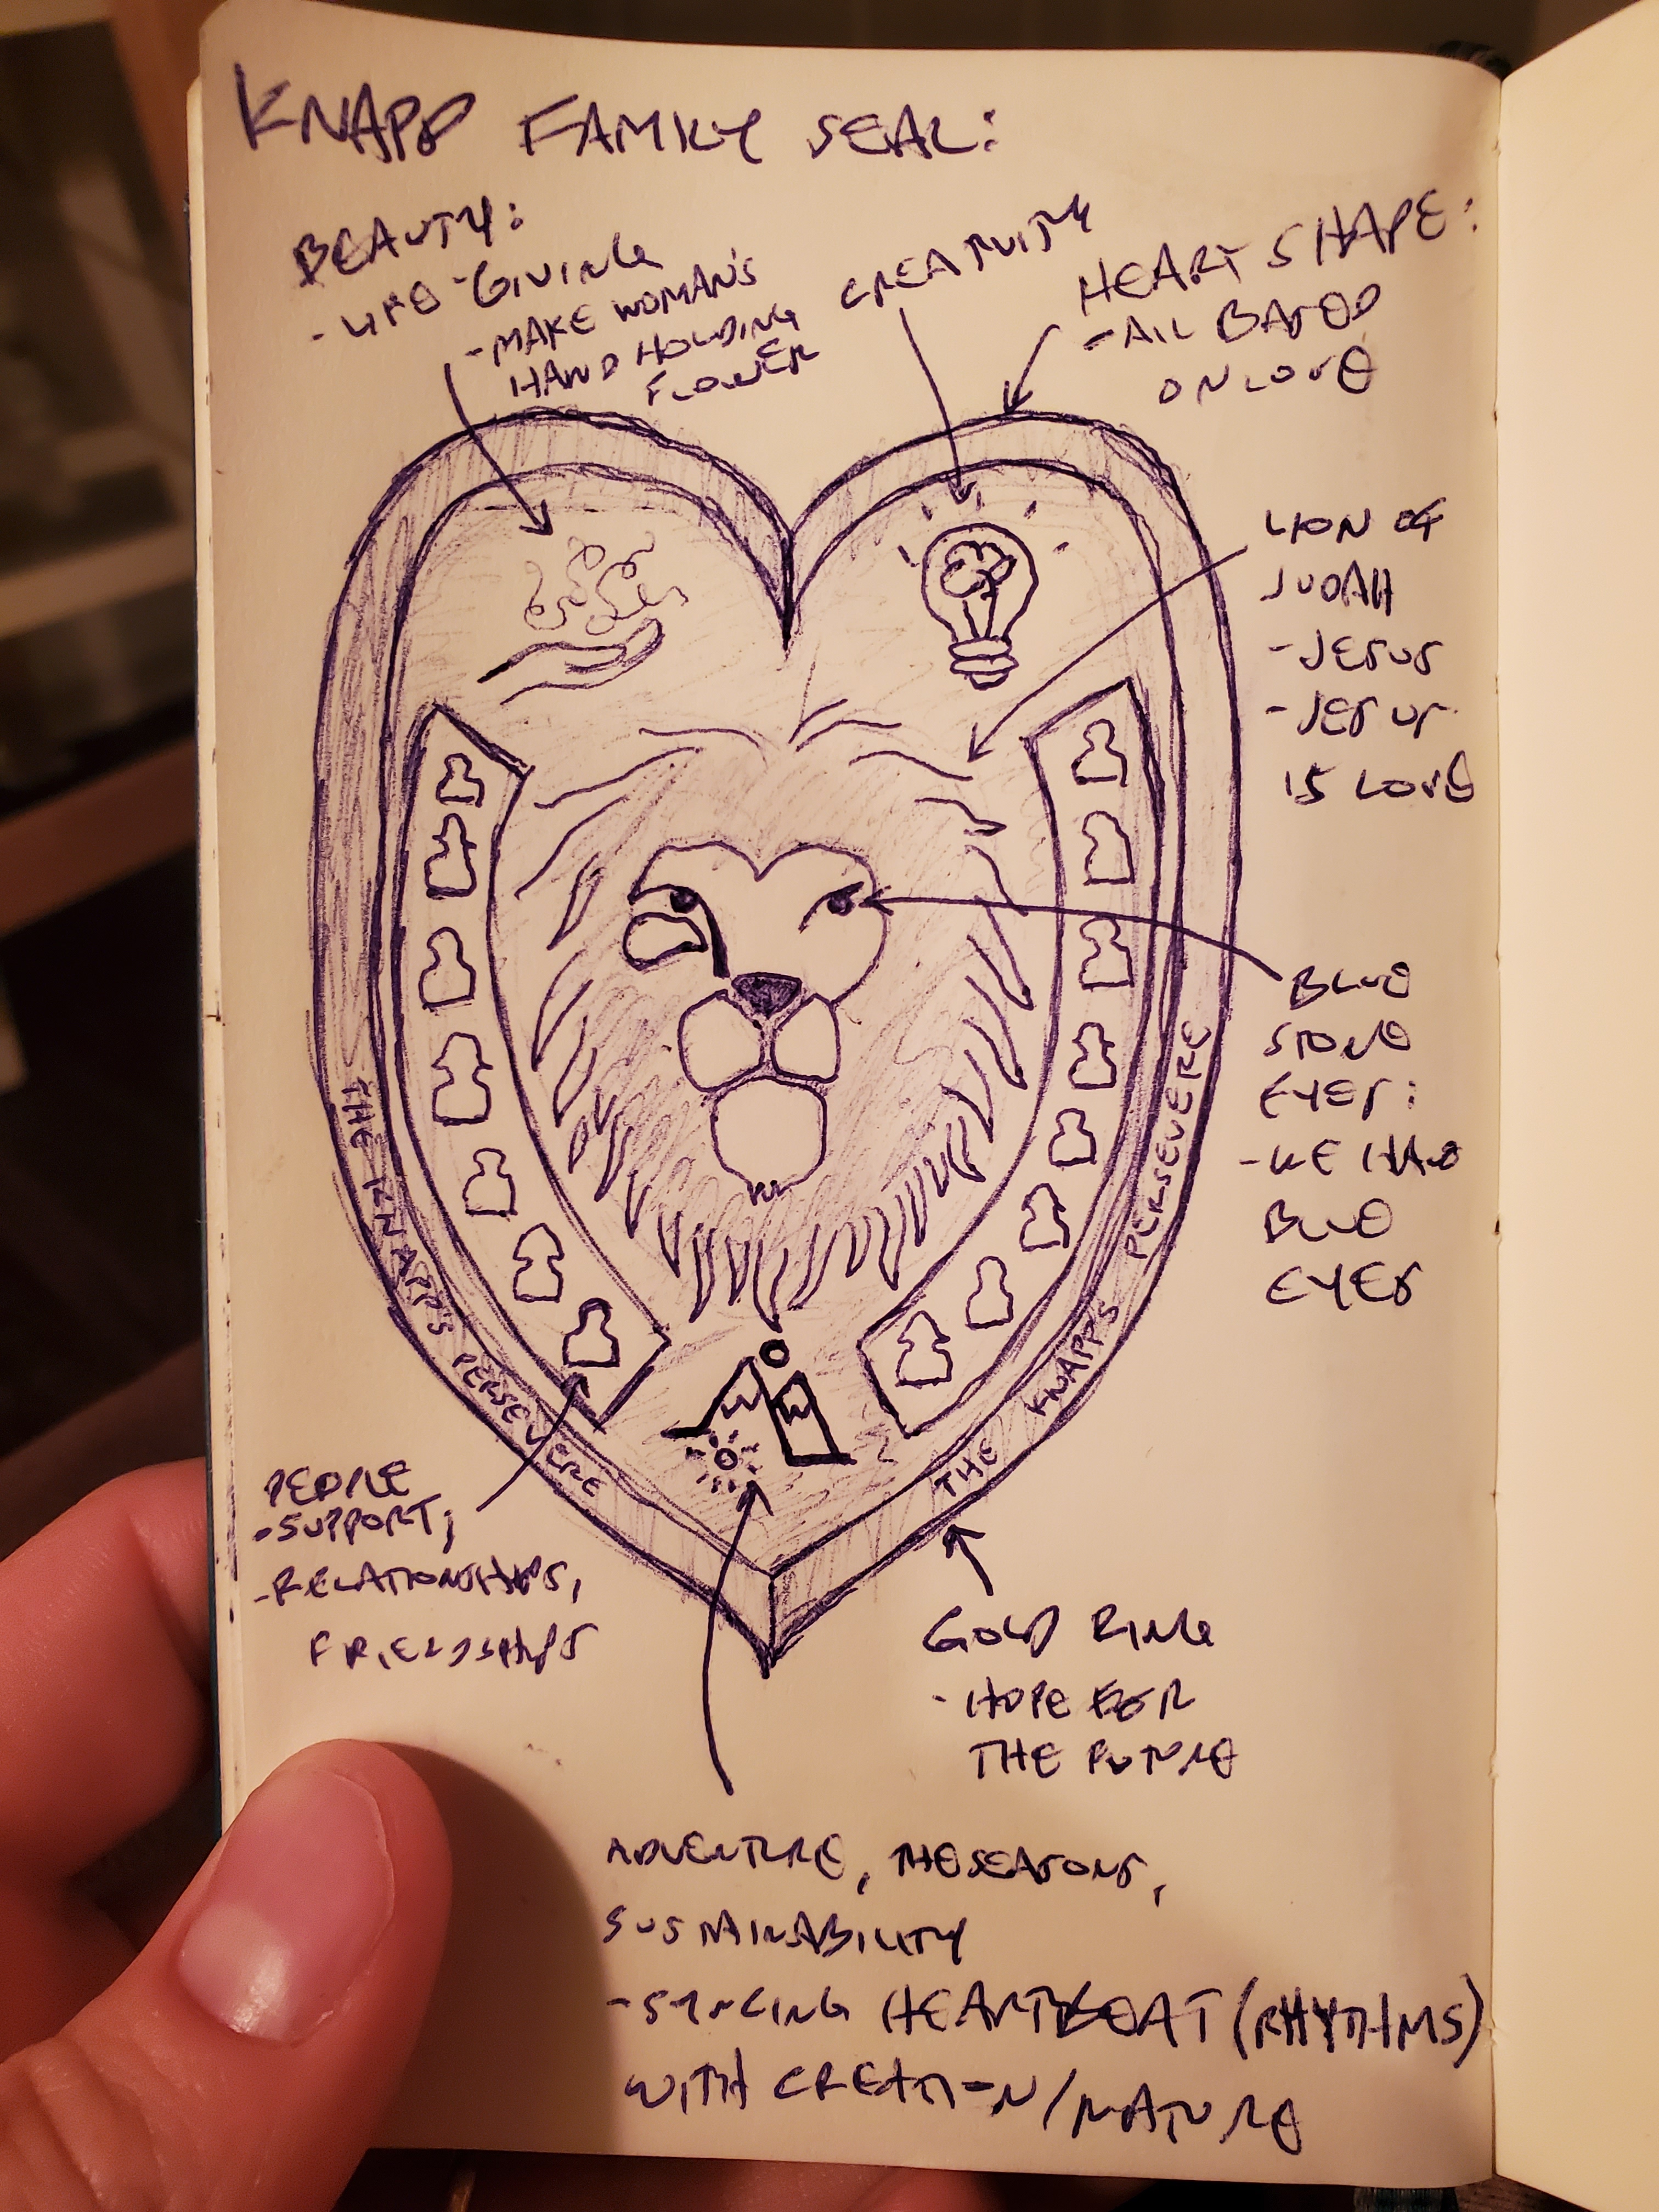 KNAPP FAMILY SEAL:
BEAUTY:
- LIFE-GIVING
- MAKE WOMAN'S
HAND HOLDING
FLOWER
CREATIVITY
HEART SHAPE:
- ALL BASED
ON LOVE
LION OF
JUDAH
- JESUS
- JESUS
IS LOVE
BLUE
STONE
EYES:
- WE HAVE
BLUE
EYES
THE KNAPPS PERSEVERE
THE KNAPPS PERSEVERE
PEOPLE
- SUPPORT,
- RELATIONSHIPS,
FRIENDSHIPS
GOLD RING
- HOPE FOR
THE FUTURE
ADVENTURE, THE SEASONS,
SUSTAINABILITY
- SYNCING HEARTBEAT (RHYTHMS)
WITH CREATION/NATURE